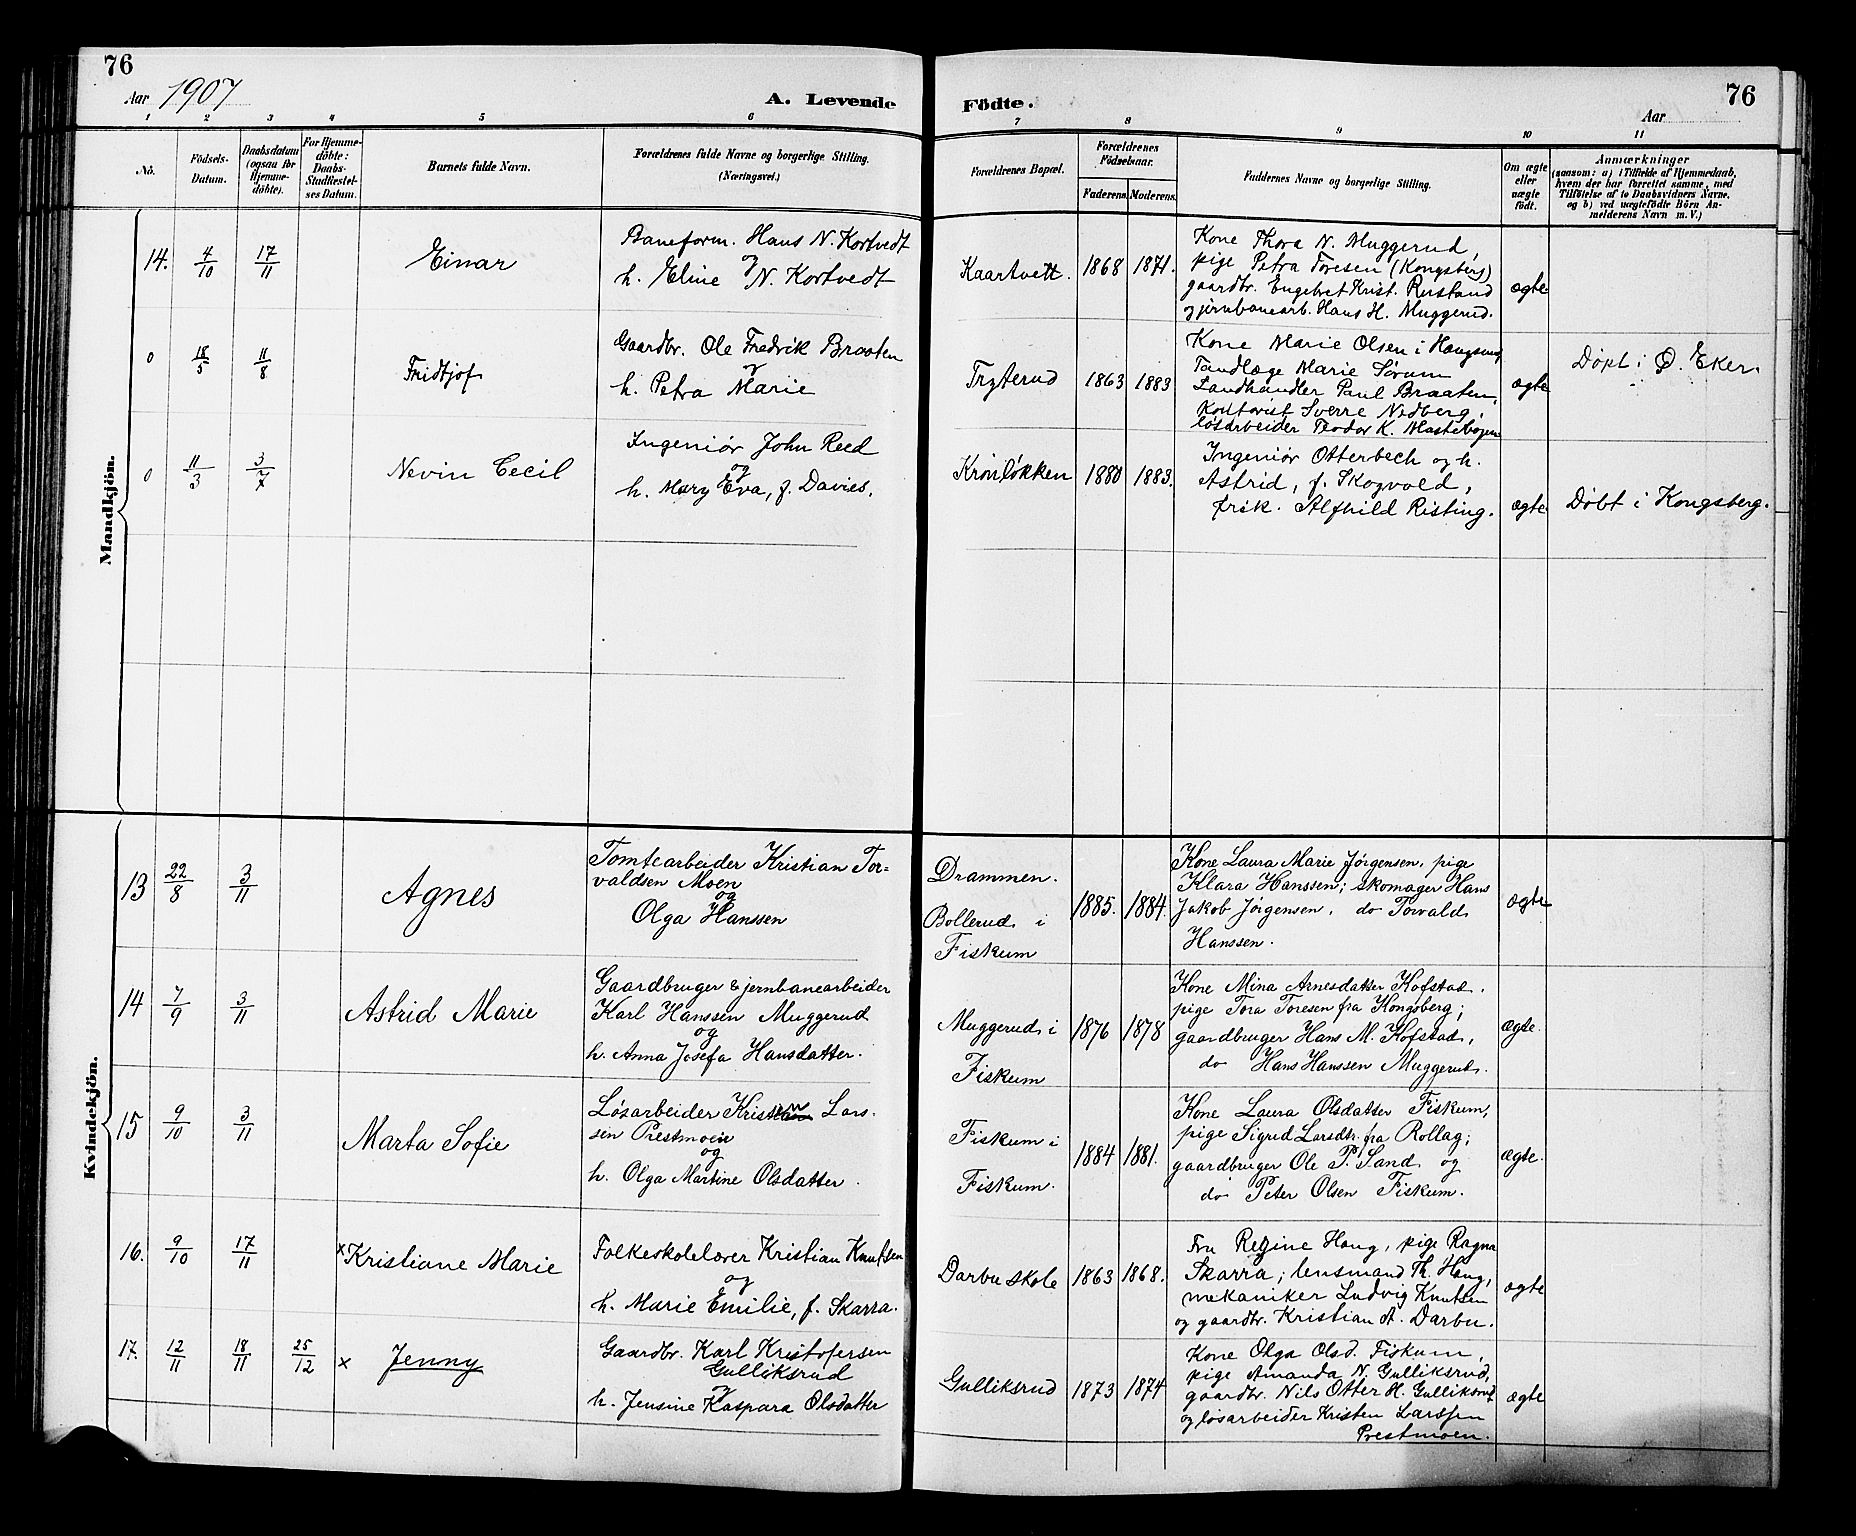 76
Aar 1907
A. Levende
Födte.
76
Aar
1 2 3 4 5 6 7 8 9 10 11
No.
Födsels-
Datum.
Daabsdatum
(ogsaa for
Hjemme-
döbte).
For Hjemme-
döbte:
Daabs-
Stadfæstel-
ses Datum.
Barnets fulde Navn.
Forældrenes fulde Navne og borgerlige Stilling.
(Næringsvei.)
Forældrenes Bopæl.
Forældrenes
Födselsaar.
Faderens.
Moderens.
Faddernes Navne og borgerlige Stilling.
Om ægte
eller
uægte
födt.
Anmærkninger
(saasom: a) i Tilfælde af Hjemmedaab,
hvem der har forrettet samme, med
Tilföielse af to Daabsvidners Navne,
og b) ved uægtefödte Börn An-
melderens Navn m. V.)
Mandkjön.
14. 4/10 17/11
Einar
Baneform. Hans N. Kortvedt
og
h. Eline N. Kortvedt
Kaartvett. 1868 1871.
Kone Thora N. Muggerud,
pige Petra Toresen (Kongsberg)
gaardbr. Engebret Krist. Rustand
og jernbanearb. Hans H. Muggerud.
ægte
0 18/5 11/8
Fridtjof
Gaardbr. Ole Fredrik Braaten
og
h. Petra Marie
Tryterud 1863 1883
Kone Marie Olsen i Hougsund,
Tandlæge Marie Sørum
Landhandler Paul Braaten,
Kontorist Sverre Nedberg,
løsarbeider Teodor K. Mastebogen
ægte
Døpt i Ø. Eker.
0 11/3 3/7
Nevin Cecil
Ingeniør John Reed
og
h. Mary Eva, f. Davies.
Kronløkken 1880 1883.
Ingeniør Otterbech og h.
Astrid, f. Skogvold,
frøk. Alfhild Risting.
ægte
Døbt i Kongsberg.
Kvindekjön.
13 22/8 3/11
Agnes
Tomtearbeider Kristian Tor-
valdsen Moen
og
Olga Hanssen
Drammen.
Bollerud i
Fiskum
1885. 1884.
Kone Laura Marie Jørgensen, pige
Klara Hanssen; skomager Hans
Jakob Jørgensen, do Torvald
Hanssen.
ægte
14 7/9 3/11
Astrid Marie
Gaardbruger & jernbanearbeider
Karl Hanssen Muggerud
og
h. Anna Josefa Hansdatter.
Muggerud i
Fiskum
1876 1878
Kone Mina Arnesdatter Hofstad,
pige Tora Toresen fra Kongsberg;
gaardbruger Hans M. Hofstad,
do Hans Hanssen Muggerud.
ægte.
15 9/10 3/11
Marta Sofie
Løsarbeider Kristen Lars-
sen Prestmoen
og
h. Olga Martine Olsdatter.
Fiskum i
Fiskum.
1884 1881.
Kone Laura Olsdatter Fiskum,
pige Sigrid Larsdtr. fra Rollag;
gaardbruger Ole P. Sand og
do Peter Olsen Fiskum.
ægte.
16. 9/10 17/11
x Kristiane Marie
Folkeskolelærer Kristian Knutsen
og
h. Marie Emilie, f. Skarra.
Darbu skole 1863 1868.
Fru Regine Houg, pige Ragna
Skarra; lensmand Th. Houg,
mekaniker Ludvig Knutsen
og gaardbr. Kristian A. Darbu.
ægte
17. 12/11 18/11 25/12
x Jenny
Gaardbr. Karl Kristofersen
Gulliksrud
og
h. Jensine Kaspara Olsdatter
Gulliksrud 1873 1874
Kone Olga Olsd. Fiskum,
pige Amanda N. Gulliksrud,
gaardbr. Nils Otter H. Gulliksrud
og løsarbeider Kristen Larssen
Prestmoen.
ægte